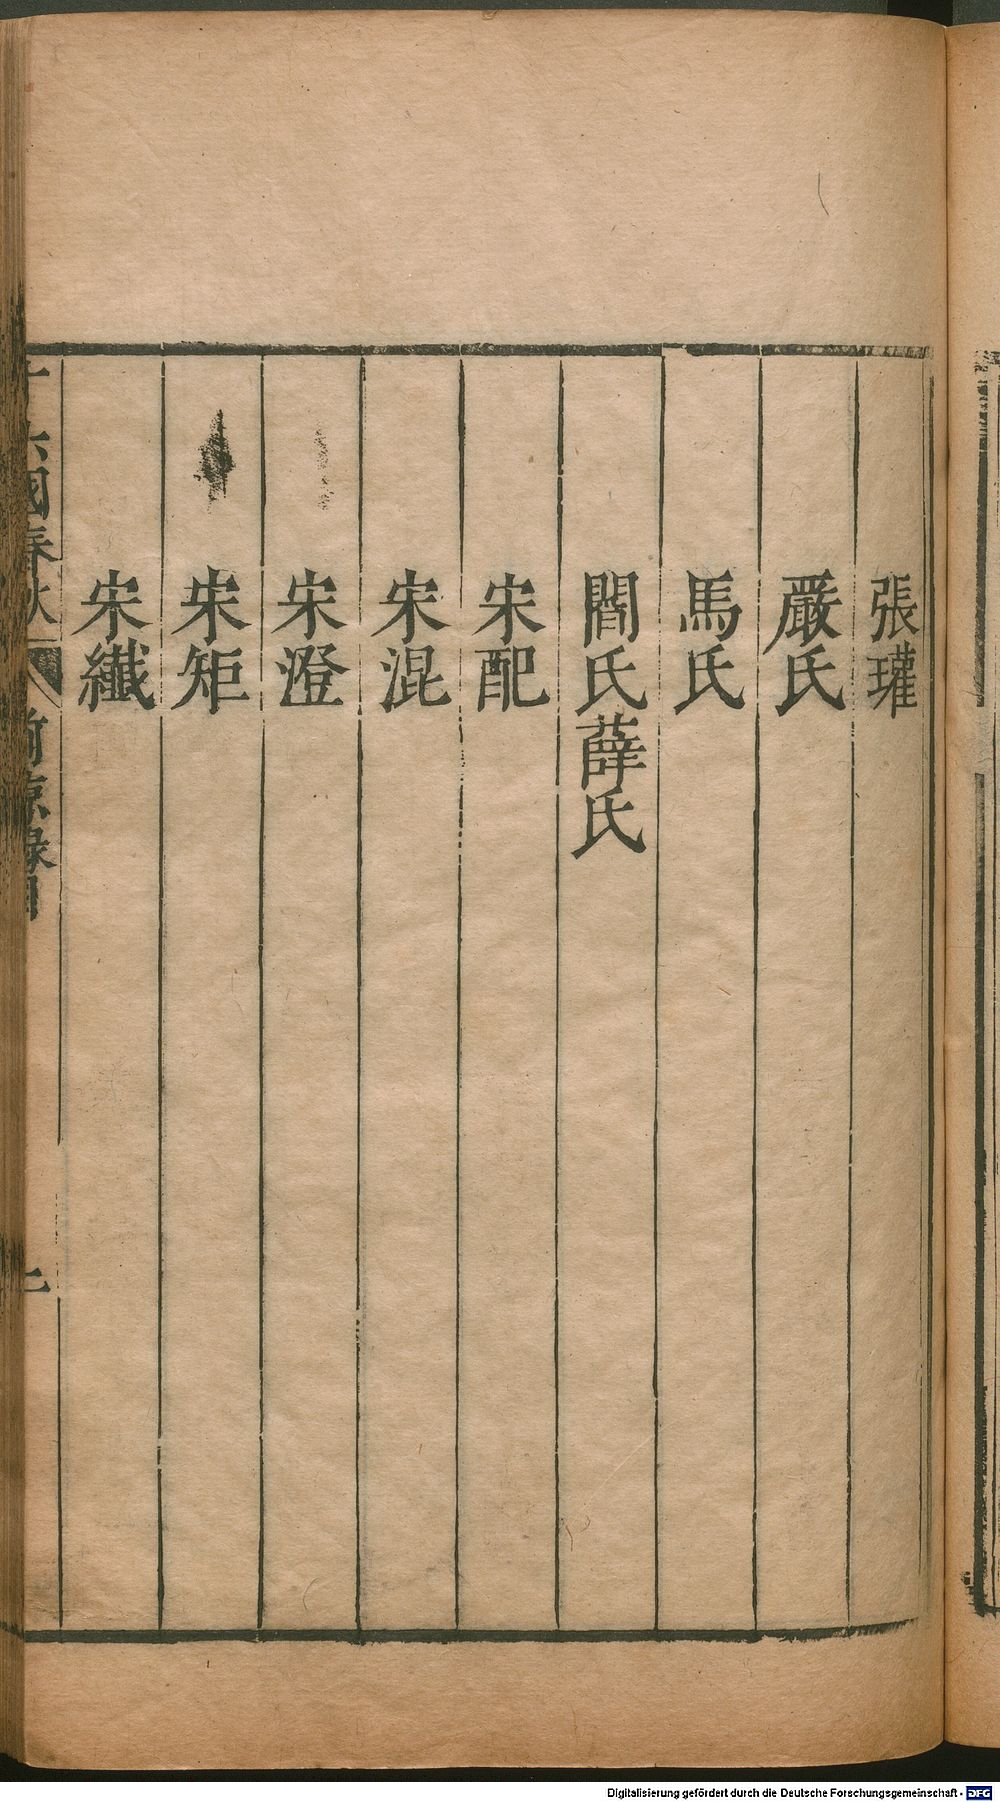 張瓘
嚴氏
馬氏
閻氏薛氏
宋配
宋混
宋澄
宋矩
宋纖
十六國春秋 前涼錄目
Digitalisierung gefördert durch die Deutsche Forschungsgemeinschaft - DFG